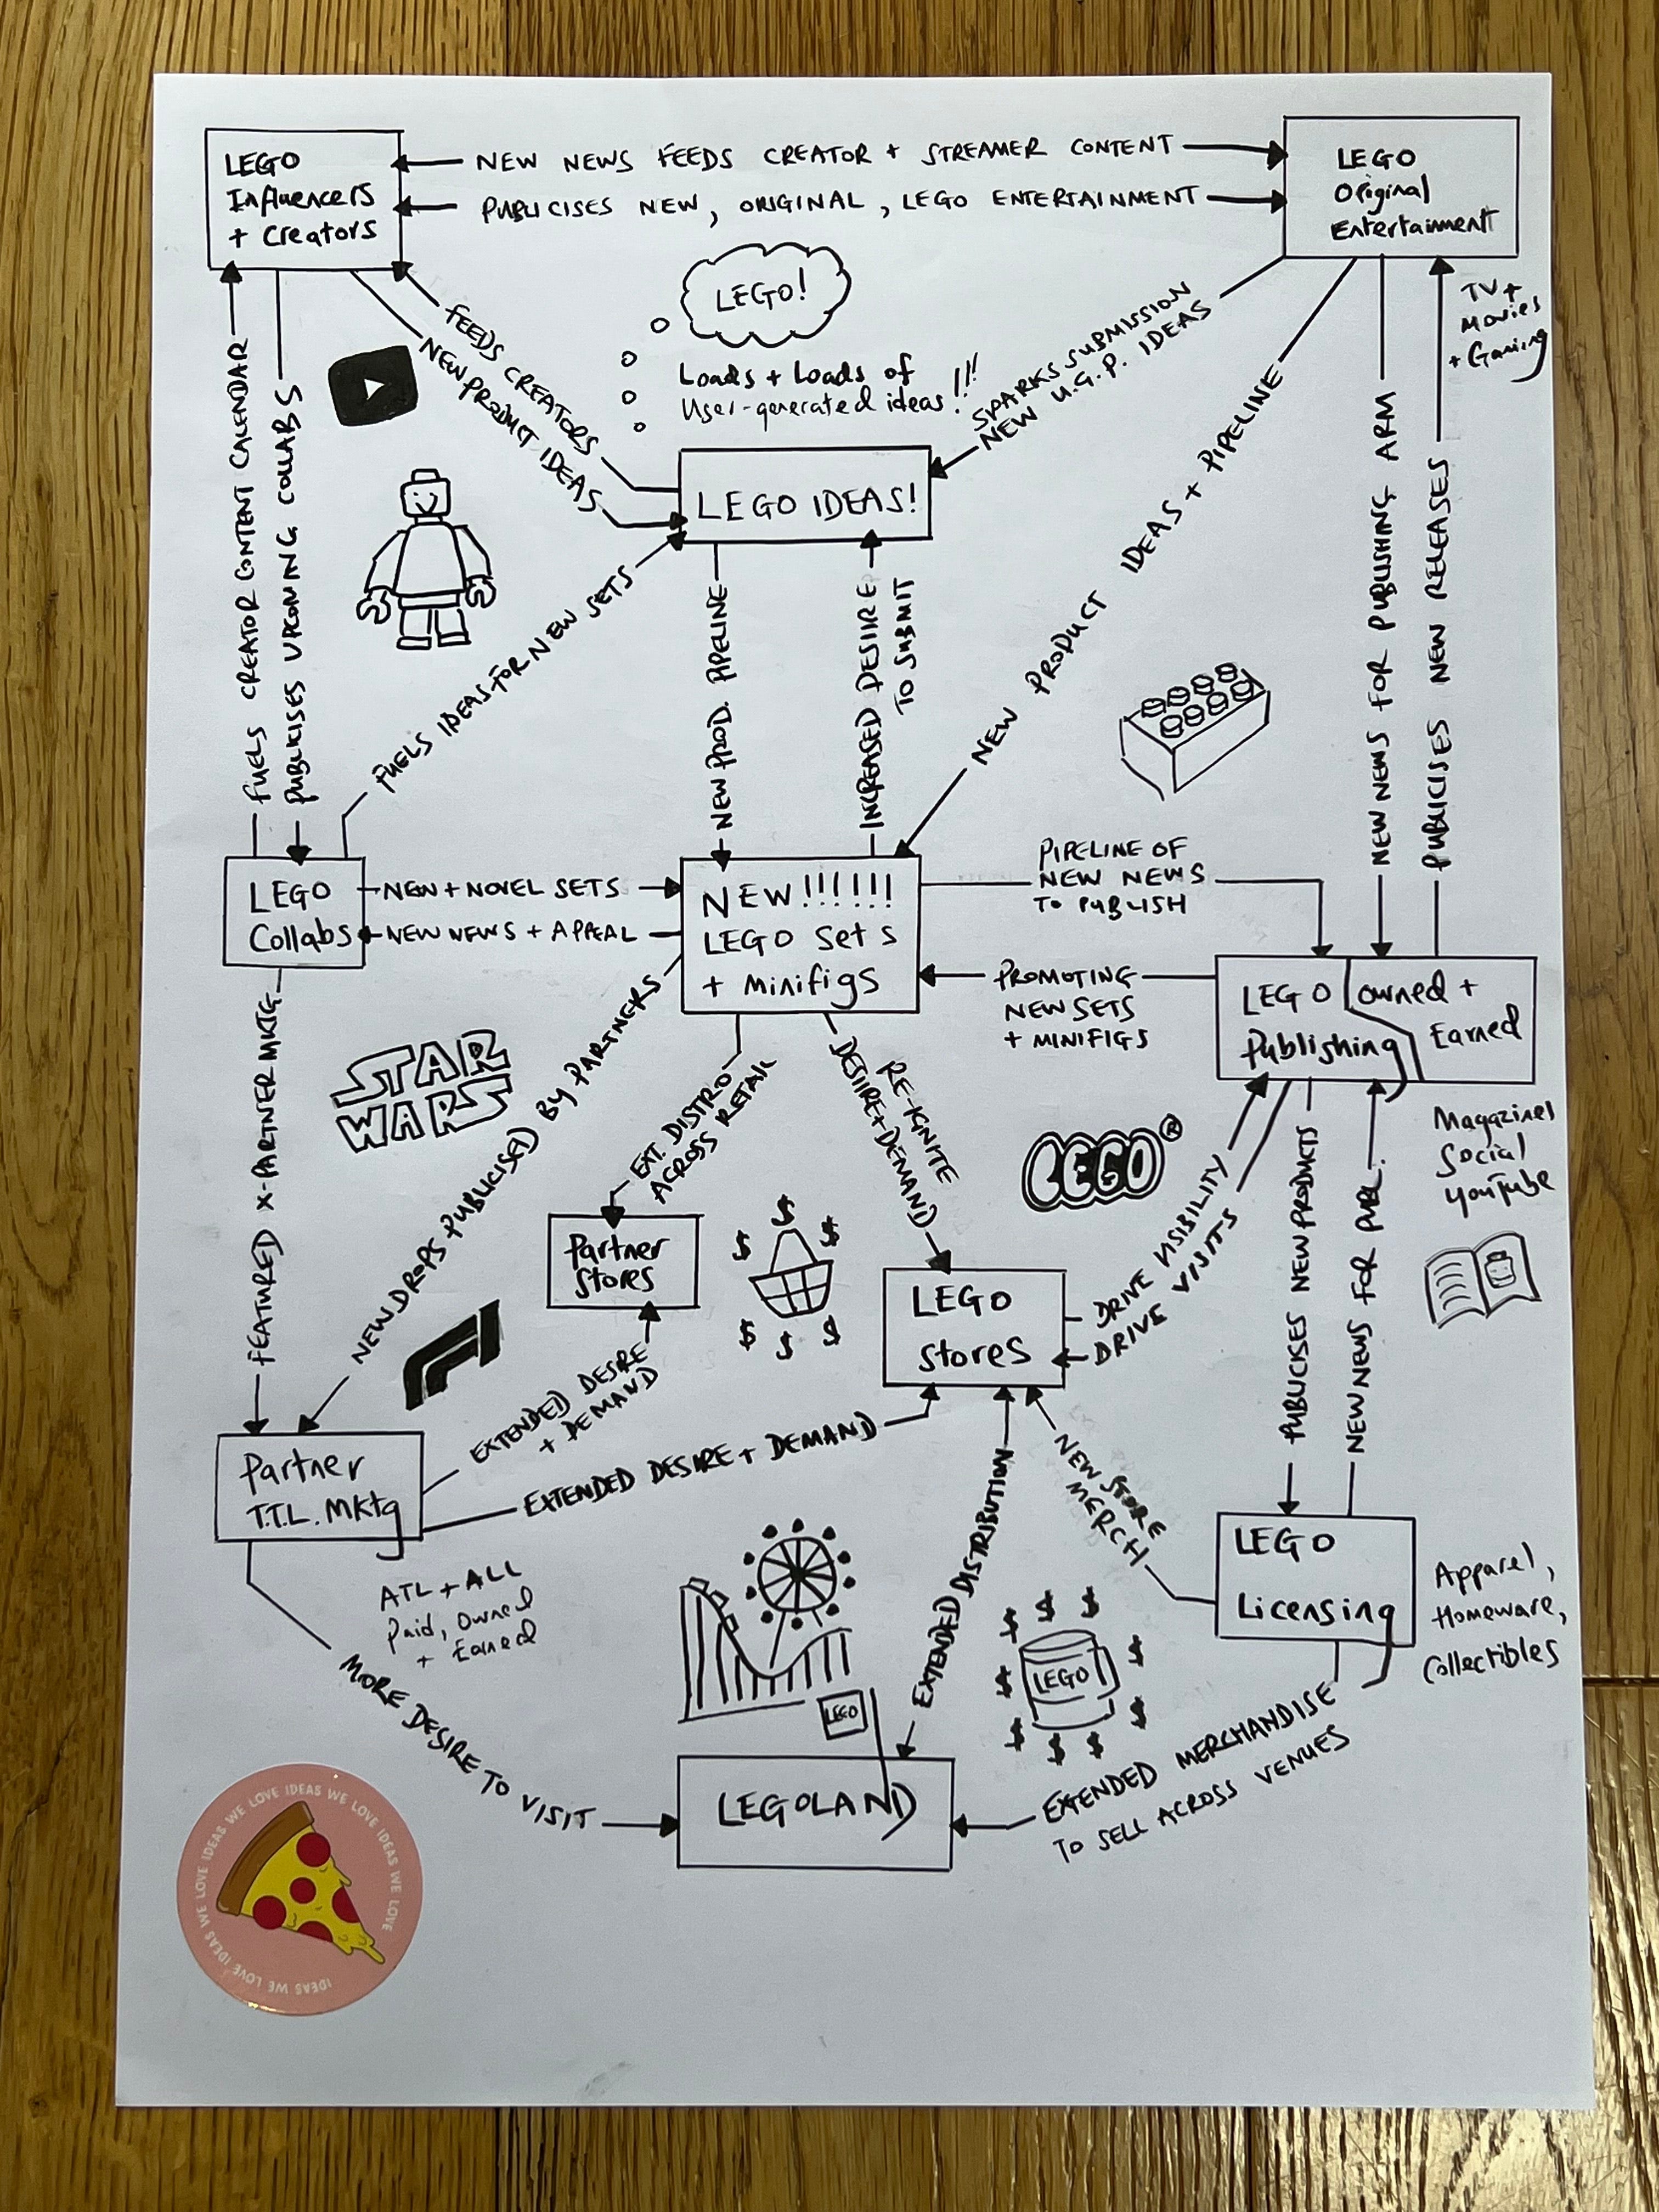 LEGO
Influencers
+ Creators
NEW NEWS FEEDS CREATOR + STREAMER CONTENT
PUBLICISES NEW, ORIGINAL, LEGO ENTERTAINMENT
LEGO
Original
Entertainment
TV +
Movies
+ Gaming
LEGO!
Loads + Loads of
User-generated ideas!!!
FEEDS CREATORS
NEW PRODUCT IDEAS
SPARKS SUBMISSION
NEW U.G.P. IDEAS
LEGO IDEAS!
FUELS CREATOR CONTENT CALENDAR
PUBLICISES UPCOMING COLLABS
FUELS IDEAS FOR NEW SETS
NEW PROD. PIPELINE
INCREASED DESIRE
TO SUBMIT
NEW PRODUCT IDEAS + PIPELINE
NEW NEWS FOR PUBLISHING ARM
PUBLICISES NEW RELEASES
LEGO
Collabs
NEW + NOVEL SETS
NEW NEWS + APPEAL
NEW!!!!!!!
LEGO Sets
+ Minifigs
PIPELINE OF
NEW NEWS
TO PUBLISH
PROMOTING
NEW SETS
+ MINIFIGS
LEGO
Publishing
owned +
Earned
Magazines
Social
YouTube
STAR
WARS
FEATURED X-PARTNER MKTG
NEW DROPS PUBLICISED BY PARTNERS
EXT. DISTRO
ACROSS RETAIL
RE-IGNITE
DESIRE + DEMAND
LEGO®
Partner
Stores
$ $ $ $ $ $
LEGO
Stores
DRIVE VISIBILITY
DRIVE VISITS
PUBLICISES NEW PRODUCTS
NEW NEWS FOR PUBL.
Partner
T.T.L. Mktg
ATL + ALL
Paid, Owned
+ Earned
EXTENDED DESIRE
+ DEMAND
EXTENDED DESIRE + DEMAND
NEW STORE
MERCH
EXTENDED DISTRIBUTION
LEGO
Licensing
Apparel,
Homeware,
Collectibles
LEGO
$ $ $ $ $ $ $ $ $ $
LEGO
MORE DESIRE TO VISIT
LEGOLAND
EXTENDED MERCHANDISE
TO SELL ACROSS VENUES
WE LOVE IDEAS WE LOVE IDEAS WE LOVE IDEAS WE LOVE IDEAS WE LOVE IDEAS WE LOVE IDEAS